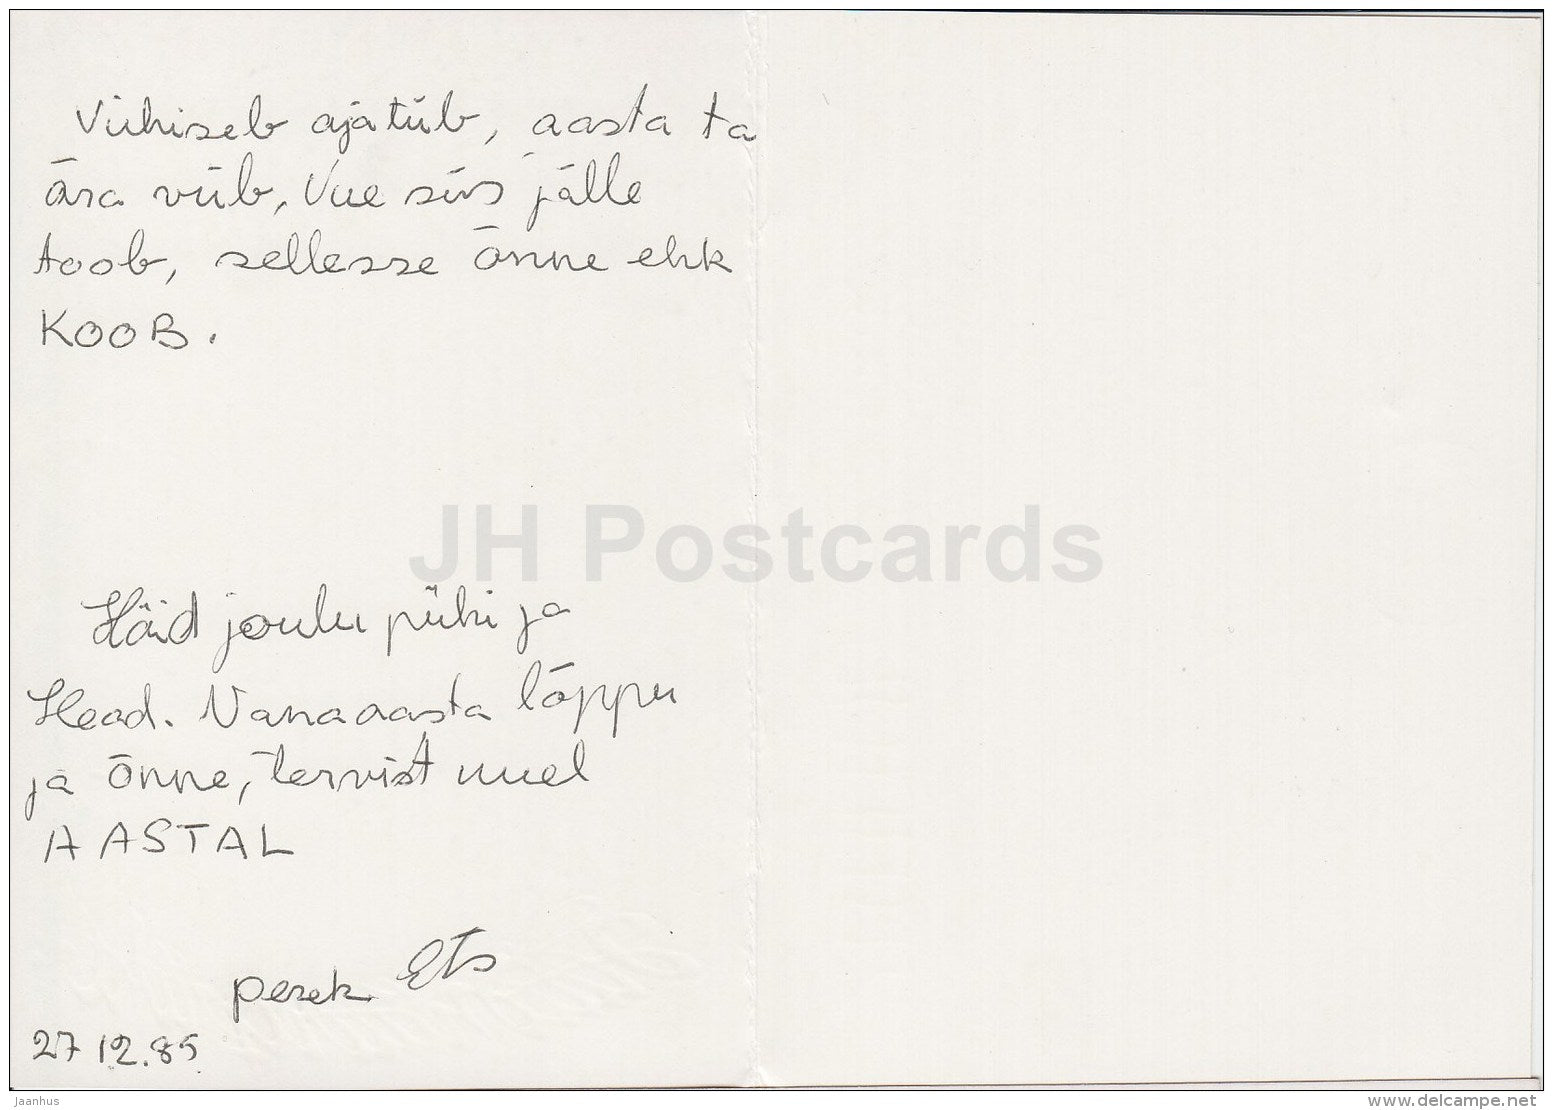 Vihiseb ajatiib, aasta ta
ära viib, Uue siis jälle
toob, sellesse õnne ehk
KOOB.
Häid joulu pühi ja
Head. Vanaaasta lõppu
ja õnne, tervist uuel
AASTAL
perek Ets
27 12.85
JH Postcards
Jaanhus
www.delcampe.net